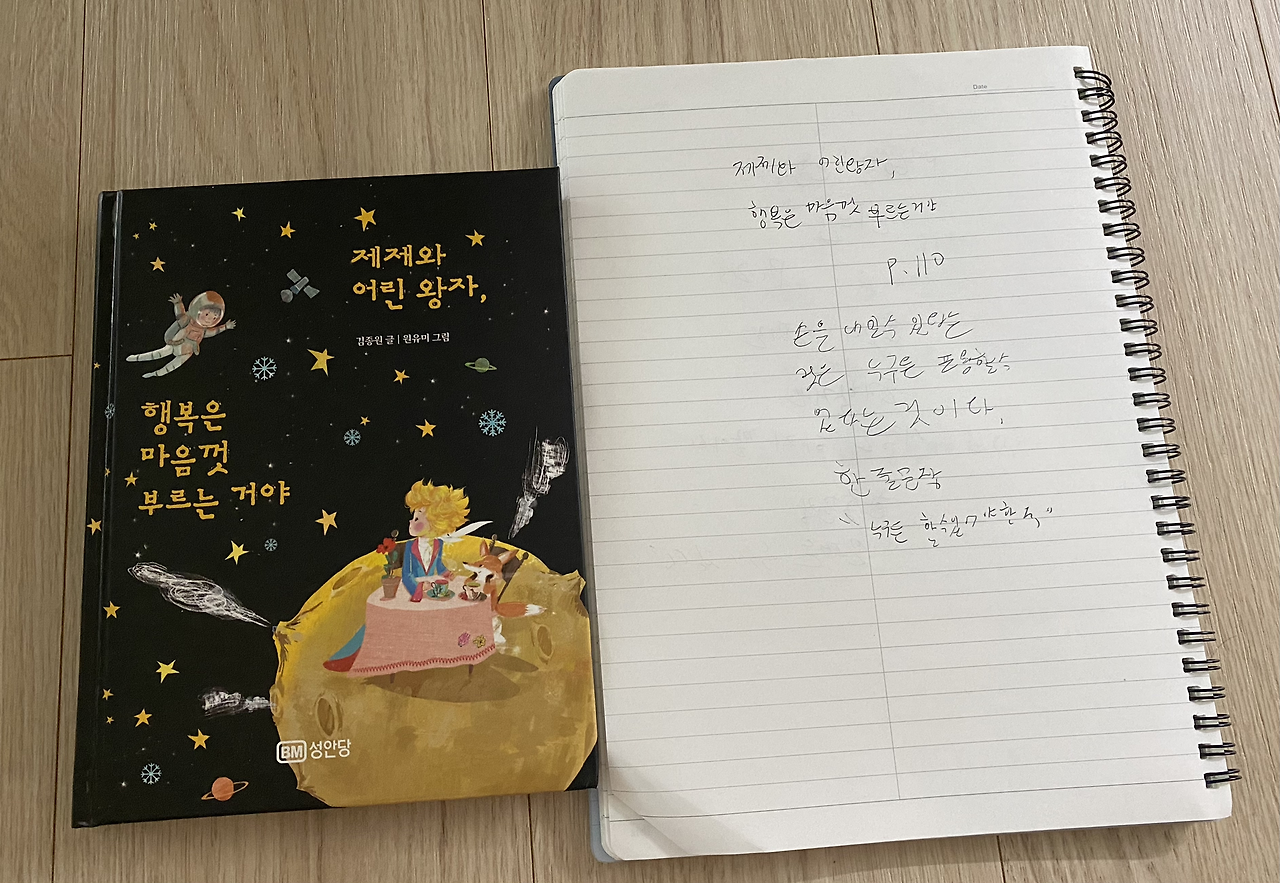 제제와
어린 왕자,
김종원 글 | 원유미 그림
행복은
마음껏
부르는 거야
BM 성안당
Date
제제와 어린왕자,
행복은 마음껏 부르는거야
P.110
손을 내밀수 있다는
것은 누구든 포용할수
있다는 것이다.
한 줄 문장
누구든 할수있